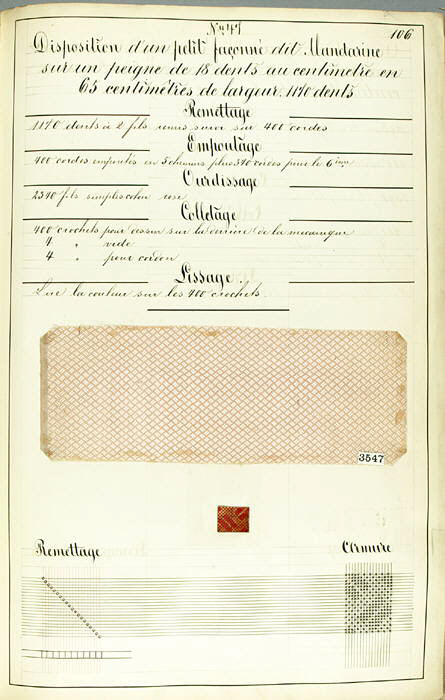 Nº 47
106
Disposition d'un petit façonné dit Mandarine
sur un peigne de 18 dents au centimetre en
65 centimétres de largeur. 1170 dents
Remettage
1170 dents à 2 fils suivi sur 400 cordes
Empoutage
400 cordes empoutés en 5 chemins plus 340 cordes pour le 6ème
Ourdissage
2340 fils simples coton
Colletage
400 crochets pour dessin sur la derrière de la mécanique
4 " vide
4 " pour cordon
Lissage
Lire la couleur sur les 400 crochets.
3547
Remettage
Armure